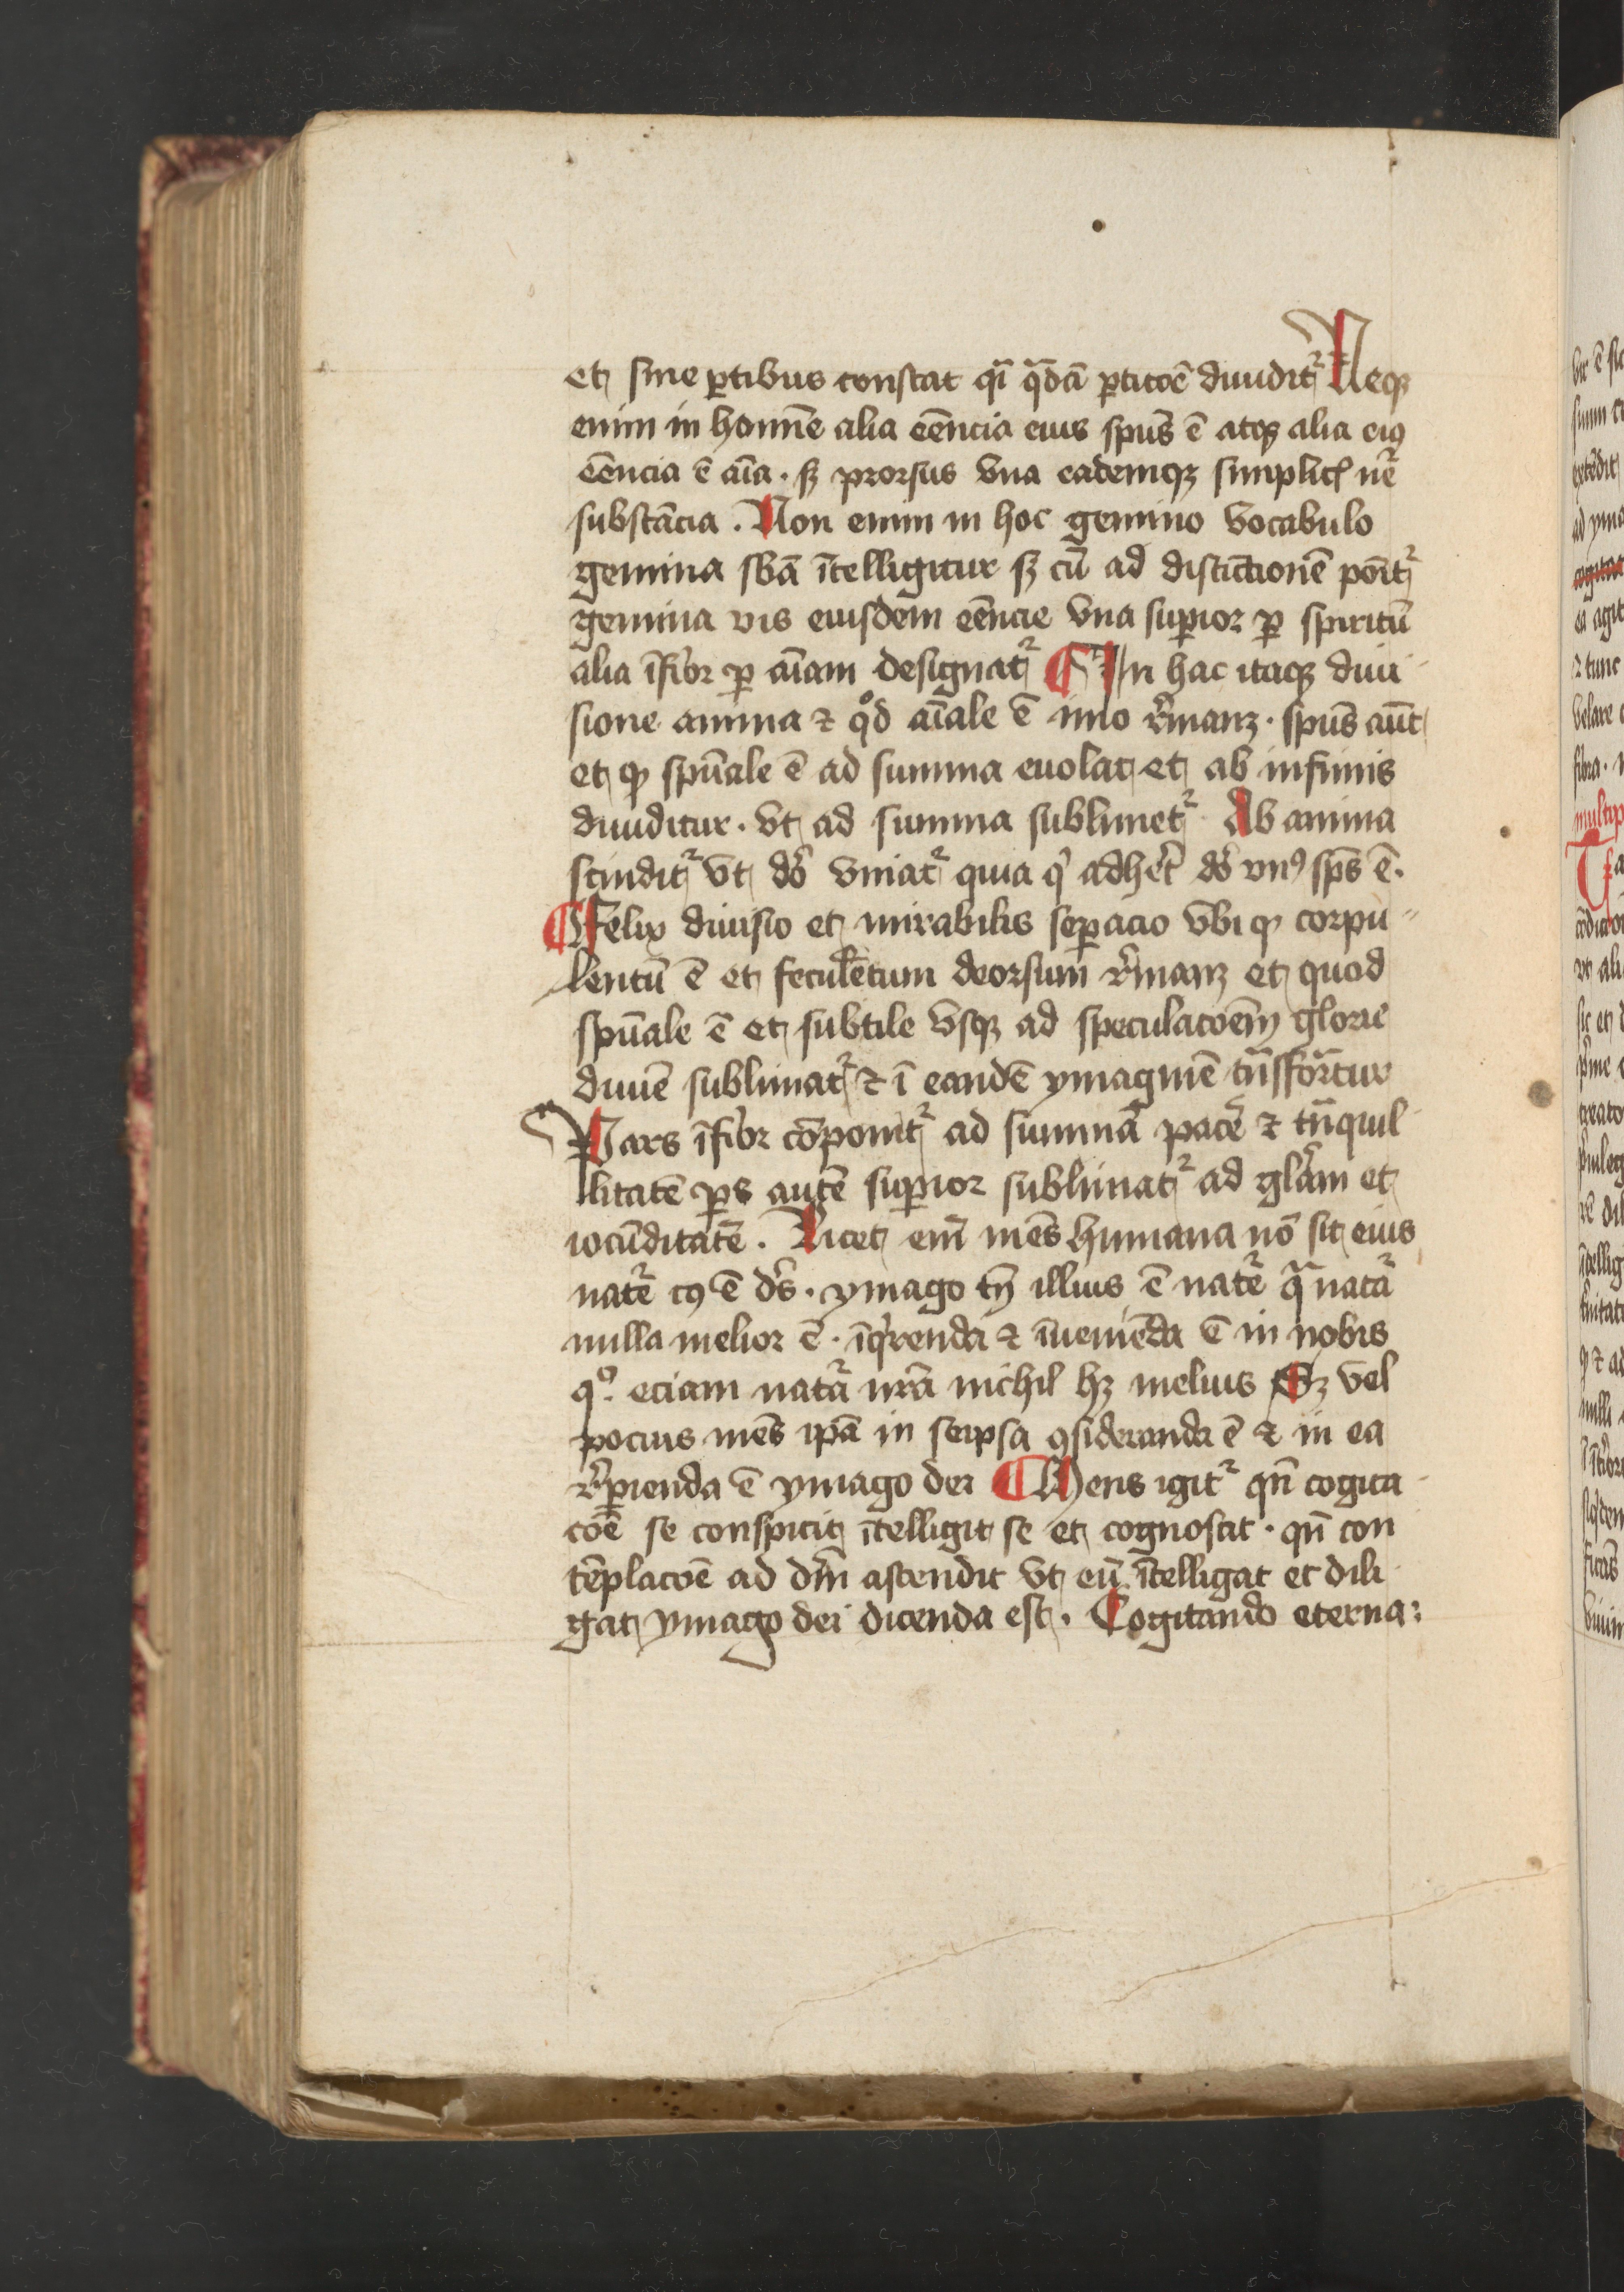 et sine ꝑtibus constat qͣi qͣdā ꝑticōe diuidit᷑ Neqꝫ
enim in homīne alia eēncia eius spūs ē atqꝫ alia eiꝰ
eēncia ē aīa · sꝫ prorsus vna eademqꝫ simplicꝭ nͤ
substācia . Non enim in hoc gemino vocabulo
gemina sbā ītelligitur sꝫ cū ad distīctionē pōit᷑
gemina vis eiusdem eēncie vna supior ꝑ spiritū
alia īfior ꝑ aīam designat᷑ ¶ In hac itaqꝫ diui
sione anima ⁊ qͦd aīale ē imo rͤmanꝫ · spūs aūt
et ꝙ spūale ē ad summa euolat et ab infimis
diuiditur · vt ad summa sublimet᷑ Ab anima
scindit᷑ vt dō vniat᷑ quia qͥ adheͬt dō vnꝰ spūs ē .
¶ Felix diuisio et mirabilis seꝑacio vbi ꝙ corpu
lentū ē et feculētum deorsum rͤmanꝫ et quod
spūale ē et subtile vsqꝫ ad speculacōem glorie
diuīe sublimat᷑ ⁊ ī eandē ymaginē tͣnsformͣtur
Pars īfior cōponit᷑ ad summā pacē ⁊ tͣnquil
litatē ꝑs autē supior sublimat᷑ ad glām et
iocūditatē . Licet eīm mēs humana nō sit eius
natͤ cꝰ ē dͤs · ymago tn̄ illius ē natͤ qͣ natͣ
nulla melior ē · īqͥrenda ⁊ īueniēda ē in nobis
qͦ eciam natͣ nrā nichil hꝫ melius Sꝫ vel
pocius mēs ip̄a in seipsa ꝯsideranda ē ⁊ in ea
rͤꝑienda ē ymago dei ¶ Mens igit᷑ qn̄ cogita
cōe se conspicit ītelligit se et cognoscit · qn̄ con
tēplacōe ad dm̄ ascendit vt eū ītelligat et dili
gat ymago dei dicenda est . Cogitando eterna :